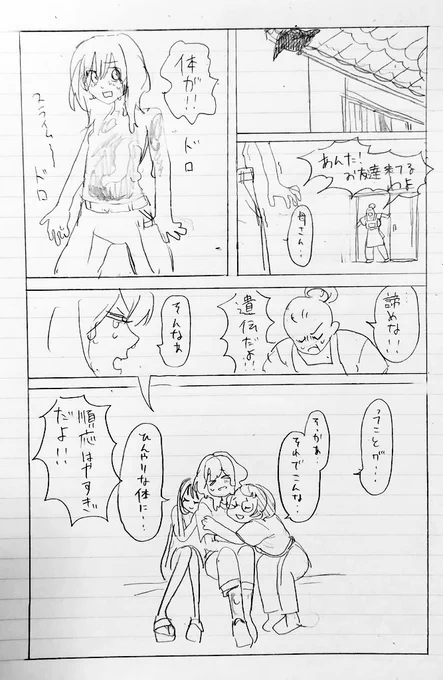 あんた！
お友達来てる
わよ
母さん…
体が!!
ドロ
ドロ
諦めな!!
遺伝だよ!!
そんなぁ
そかぁ・・
それでこんな・・
ひんやりな体に・・・
順応はやすぎ
だよ!!